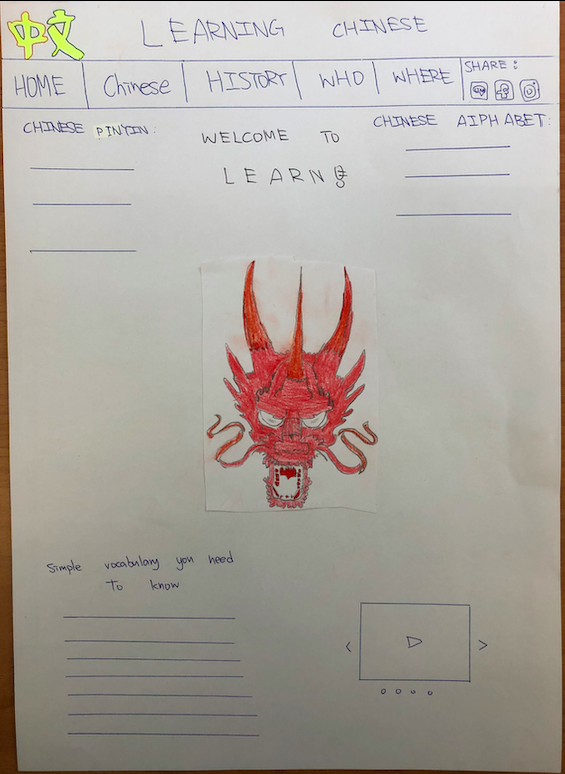 中文 LEARNING CHINESE
HOME Chinese HISTORY WHO WHERE SHARE:
CHINESE PINYIN:
WELCOME TO
LEARN
CHINESE AIPHABET:
Simple vocabulary you need
To know